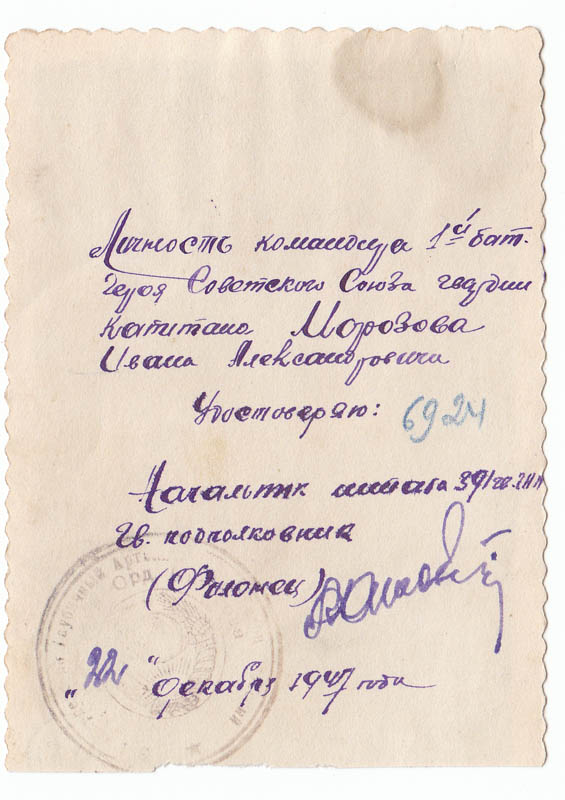 Личность командира 1й бат.
Героя Советского Союза гвардии
капитана Морозова
Ивана Александровича
Удостоверяю:
6924
Начальник штаба 39 гв.
Гв. подполковник
22 декабря 1947 года